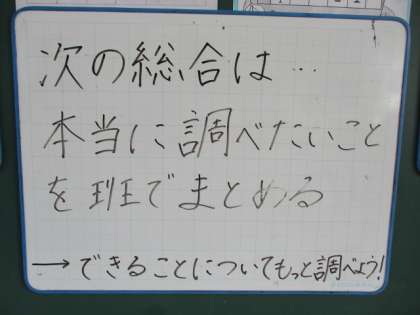 次の総合は…
本当に調べたいこと
を班でまとめる
→できることについてもっと調べよう!